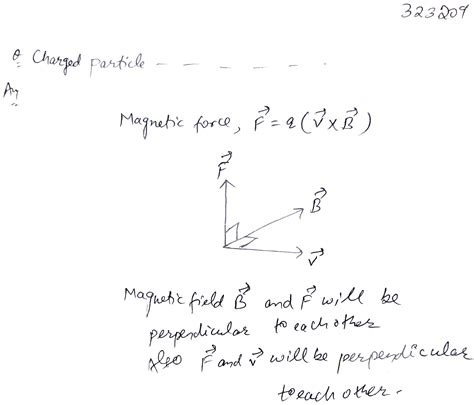 323209
Q: Charged particle - - - - - .
Ans
Magnetic force, F⃗ = q (V⃗ × B⃗)
F⃗
B⃗
V⃗
Magnetic field B⃗ and F⃗ will be
perpendicular to each other
Also F⃗ and v⃗ will be perpendicular
to each other.